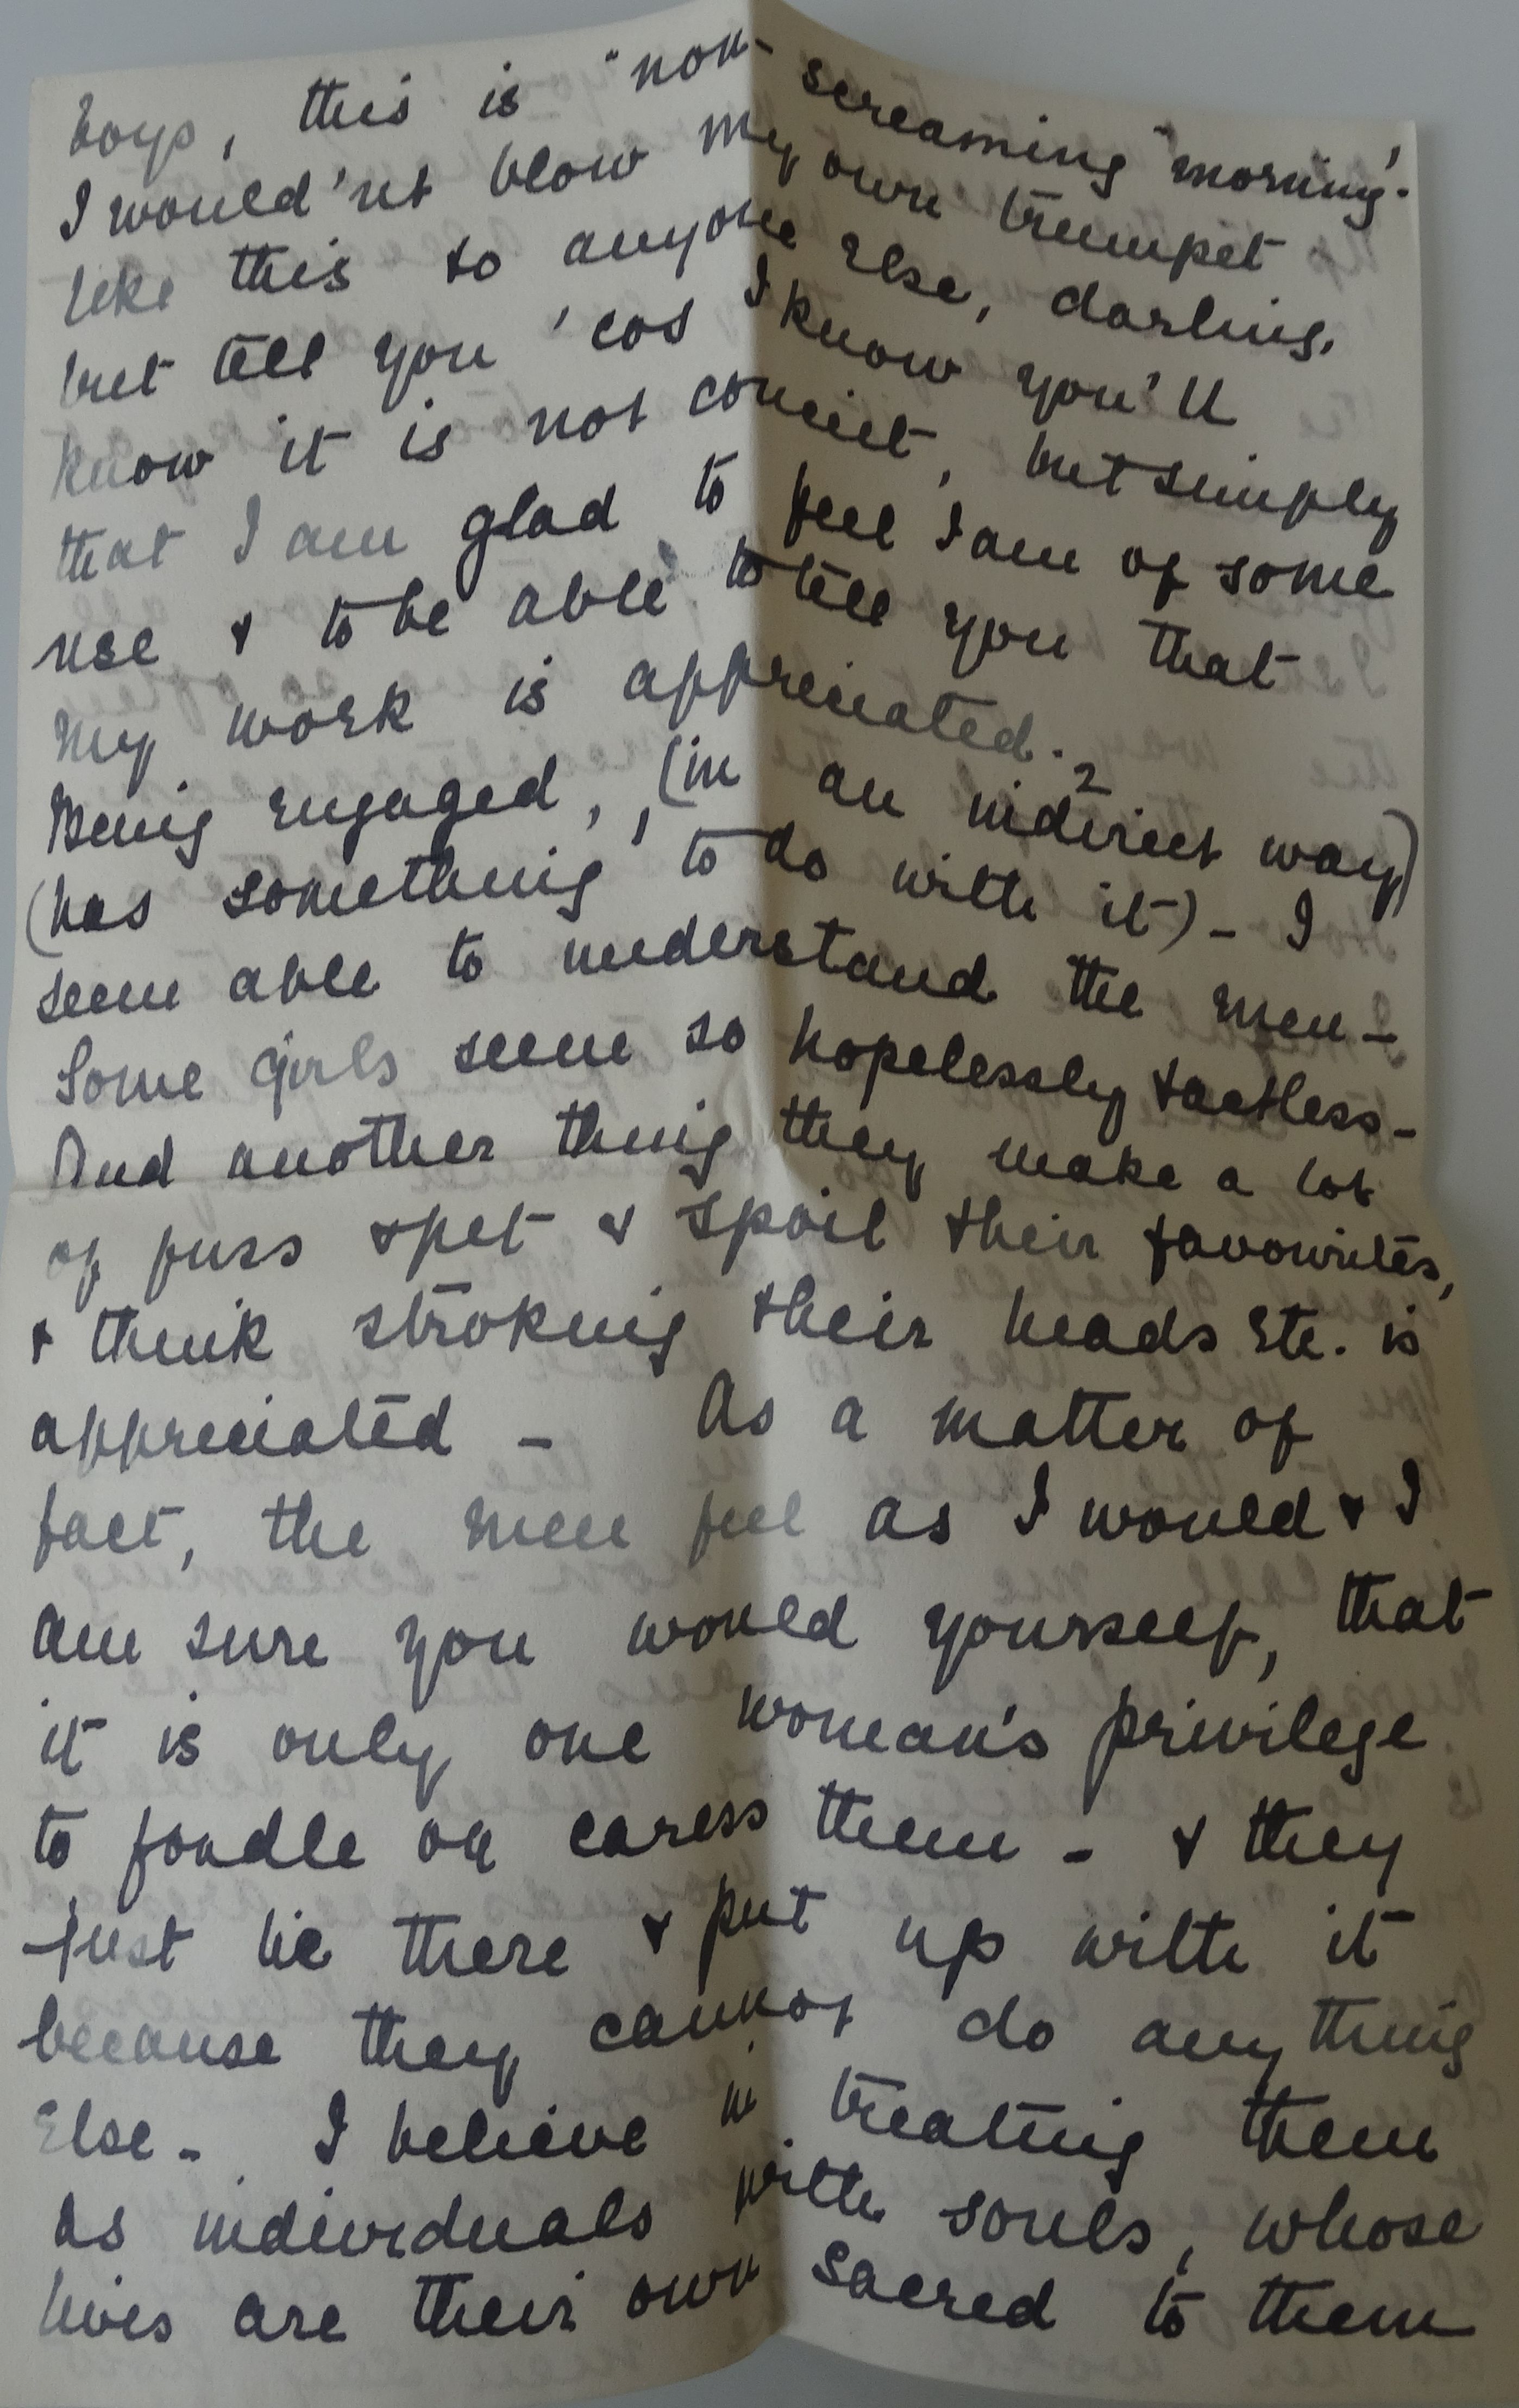 boys, this is "non-screaming" morning'.
I would'nt blow my own trumpet
like this to anyone else, darling,
but tell you 'cos I know you'll
know it is not conceit, but simply
that I am glad to feel I am of some
use & to be able to tell you that
my work is appreciated.
Being engaged, (in an indirect way)
(has something to do with it) - I
seem able to understand the men -
Some girls seem so hopelessly tactless -
And another thing they make a lot
of fuss & pet & spoil their favourites,
& think stroking their heads etc. is
appreciated - As a matter of
fact, the men feel as I would & I
am sure you would yourself, that
it is only one woman's privilege
to fondle or caress them - & they
just lie there & put up with it
because they cannot do anything
else - I believe in treating them
as individuals with souls, whose
lives are their own sacred to them